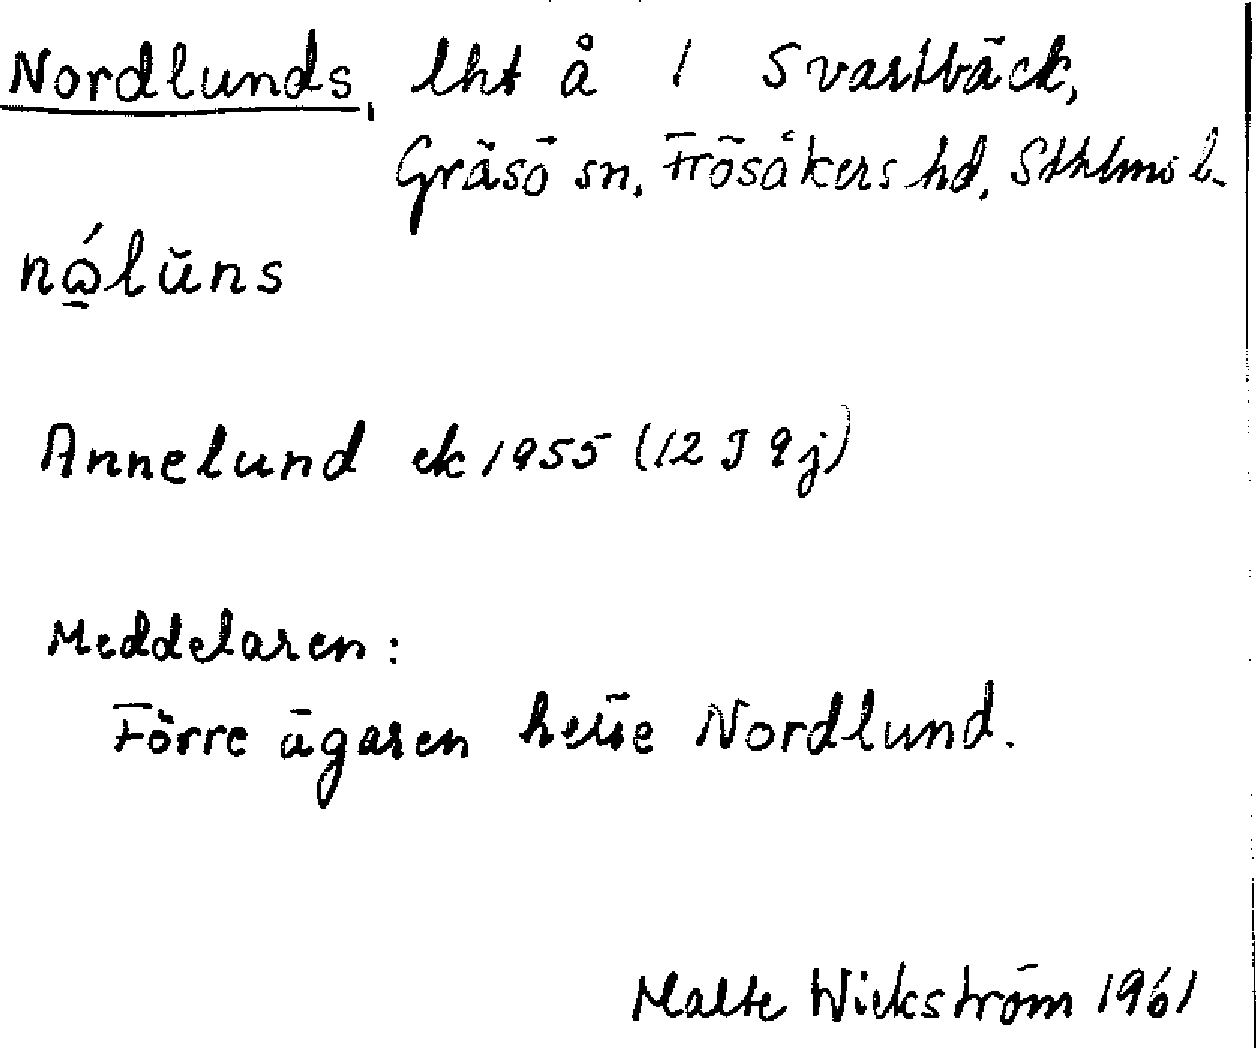 Nordlunds, lht å 1 Svartbäck,
Gräsö sn, Frösåkers hd, Sthlms l.
nώ̱lŭns
Annelund ek 1955 (12 J 9 j)
Meddelaren:
Förre ägaren hette Nordlund.
Malte Wickström 1961